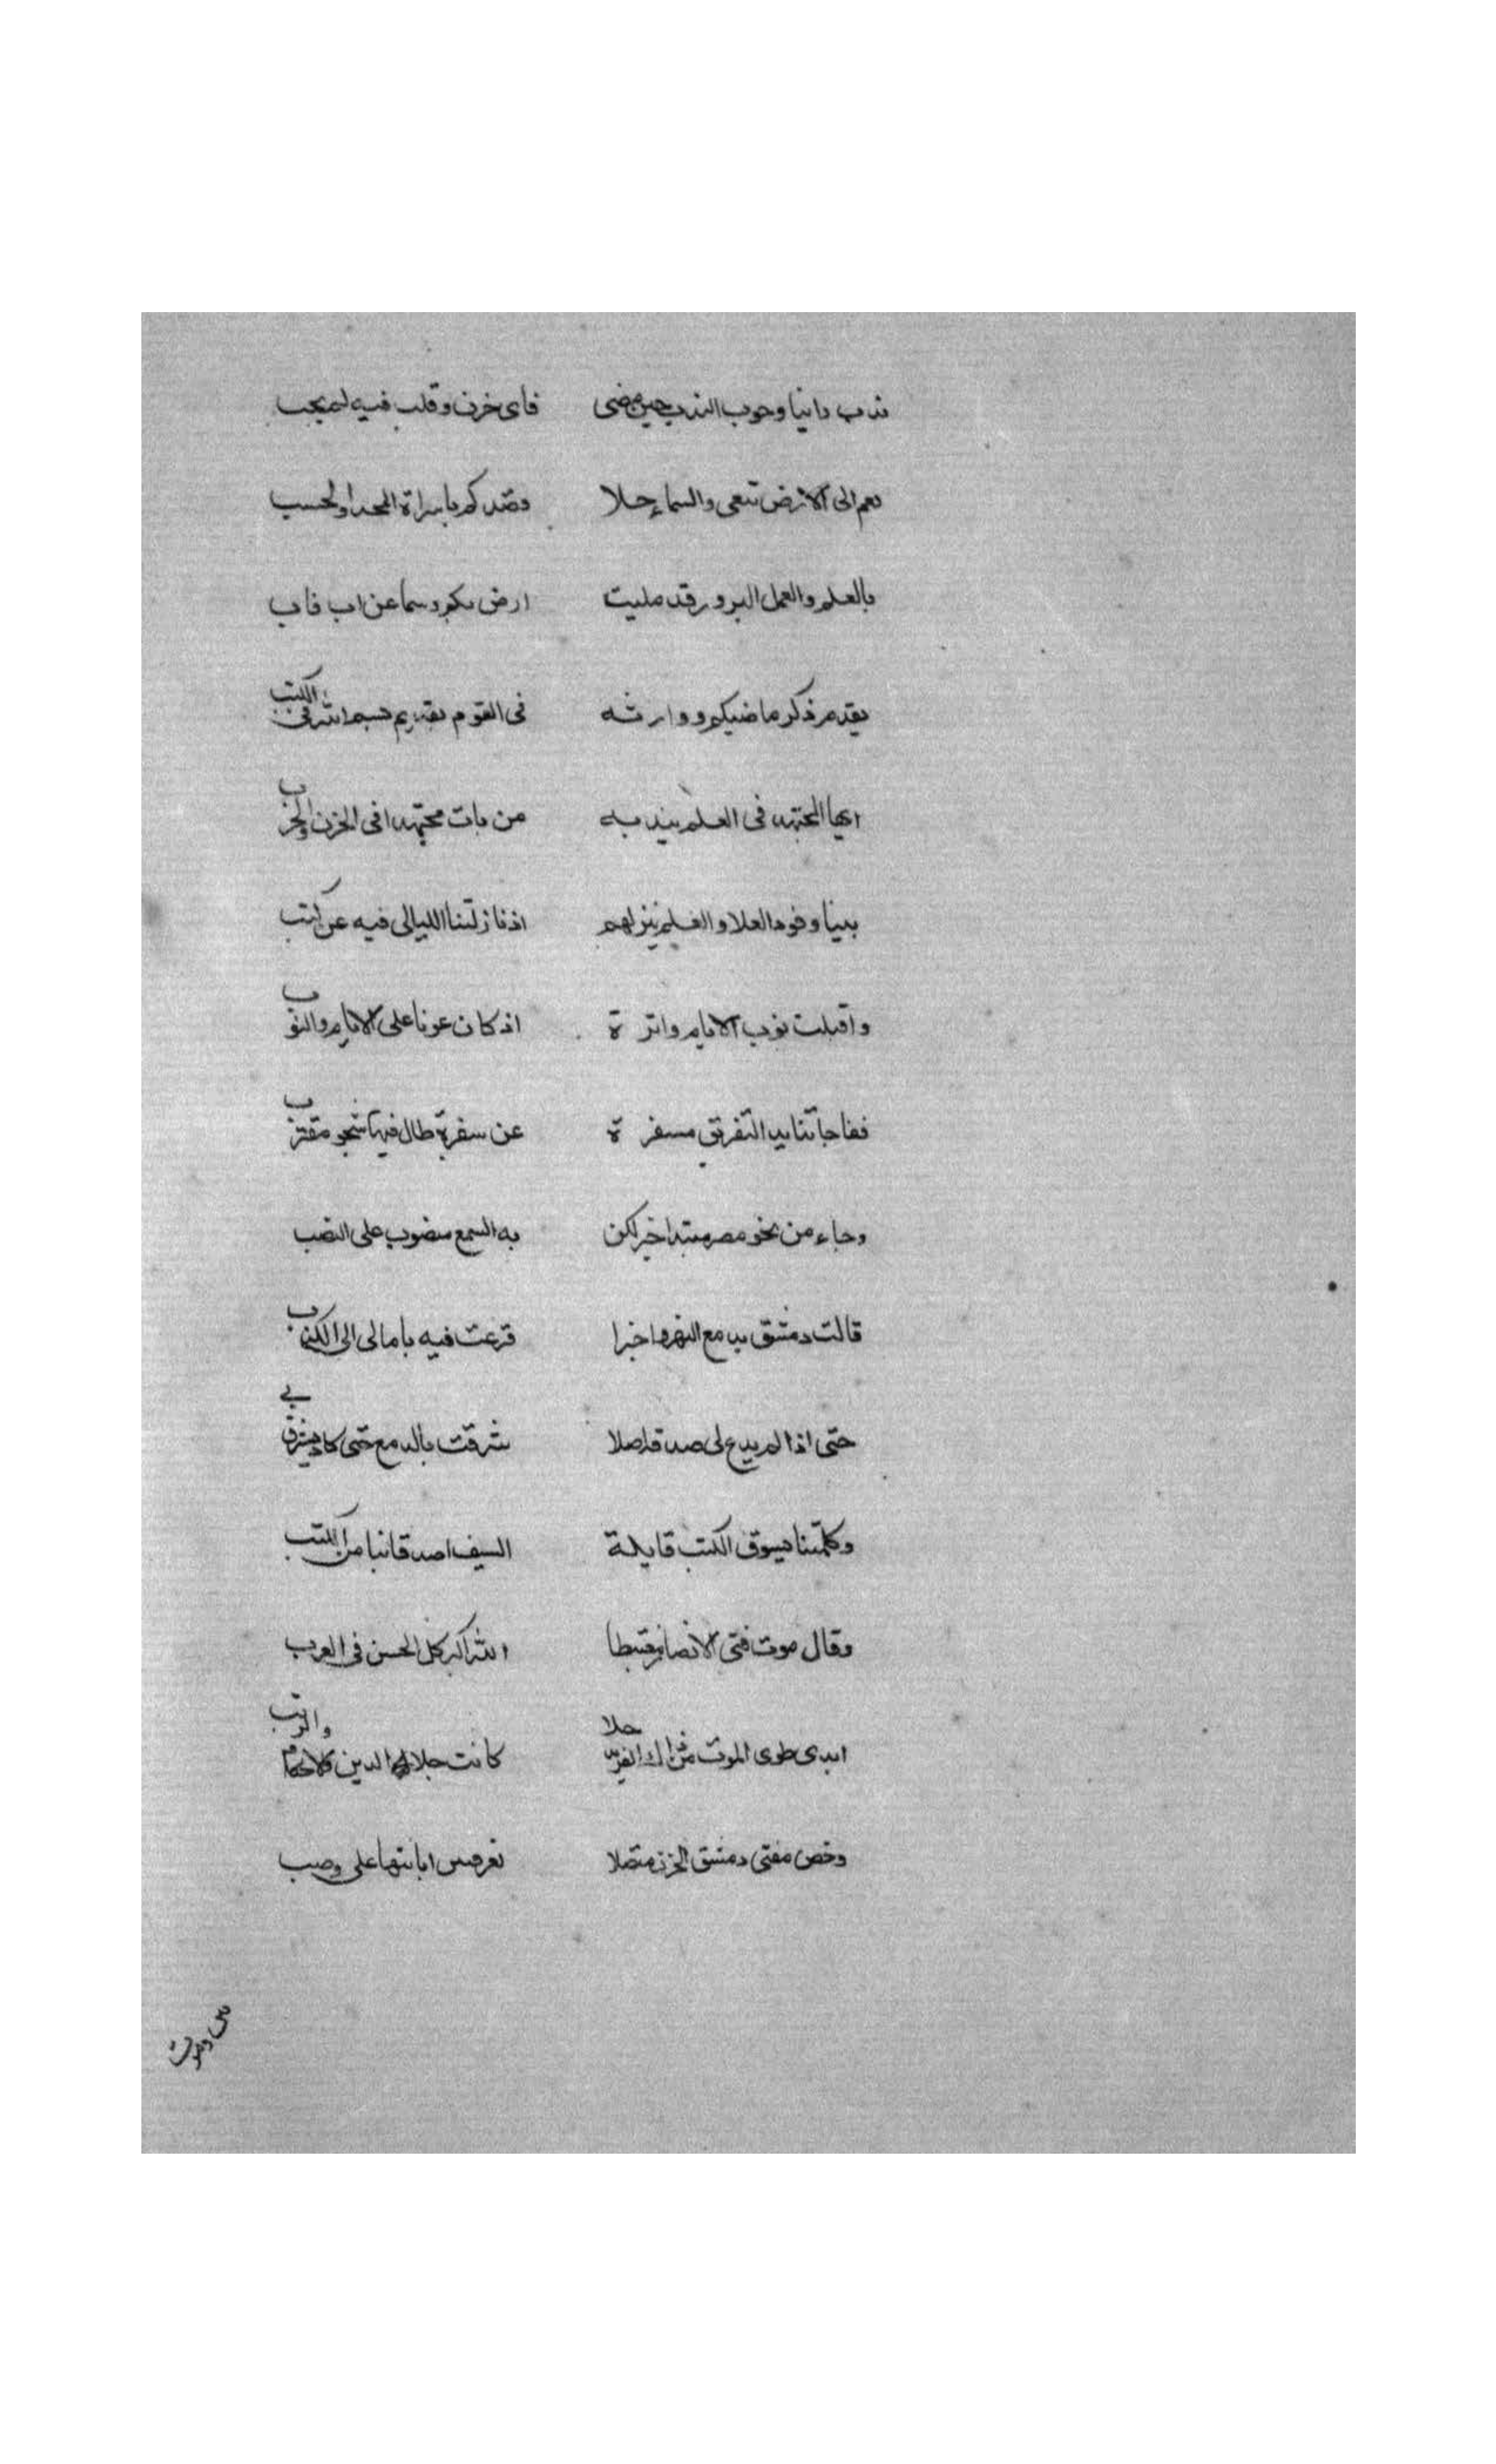 ندب دانيا وجوب الندب حين مضى فاى حزن وقلب فيه لم يجب
نعم الى الارض تنعى والسماء حلا وفقدكم يا سراة المجد والحسب
بالعلم والعمل المبرور قد مليت ارض بكم وسما عن اب فاب
يقدم ذكر ماضيكم ووارثه فى القوم تقديم بسم الله فى الكتب
ايها المجتهد فى العلم يندبه من بات مجتهدا فى الحزن والحرب
بينا وفود العلا والعلم ينزلهم اذ نازلتنا الليالى فيه عن كثب
واقبلت نوب الايام واترة اذ كان عونا على الايام والنوب
ففاجاتنا يد التفريق مسفرة عن سفرة طال فيها شجو مقترب
وجاء من نحو مصر مبتدا خبر لكن به السمع منصوب على النصب
قالت دمشق بدمع النهر واخبرا فزعت فيه بامالى الى الكذب
حتى اذا لم يدع لى صدقه املا شرقت بالدمع حتى كاد يشرق بي
وكلمتنا سيوف الكتب قايلة السيف اصدق انبا من الكتب
وقال موت فتى الانصار مغتبطا الله اكبر كل الحسن فى العرب
كانت حلا الدين والاحكام والرتب
وخص مفتى دمشق الحزن متصلا